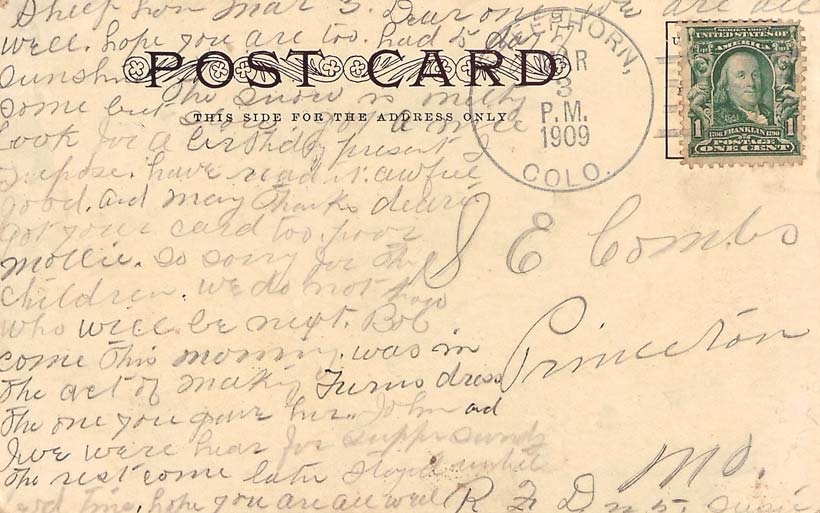 Sheep horn Mar 3. Dear one you are all
well. hope you are too. had 5 da
sunshi
The snow is melty
some but
look for a birthday present I
I spose. have read it. awful
good. and many thanks deari
got your card too. poor
mollie. So sorry for the
children. we do not know
who will be next. Bob
come this morning. was in
the act of making Ferns dress
the one you gave her. John and
were hear for supper
the rest come late stayed
hope you are all well
POST CARD
THIS SIDE FOR THE ADDRESS ONLY
EEPHORN,
MAR
3
P.M.
1909
COLO.
SERIES 1902
UNITED STATES OF
AMERICA
1706 FRANKLIN 1790
1 POSTAGE 1
ONE CENT
S E Combs
Princeton
Mo.
R F D n 5. Susie